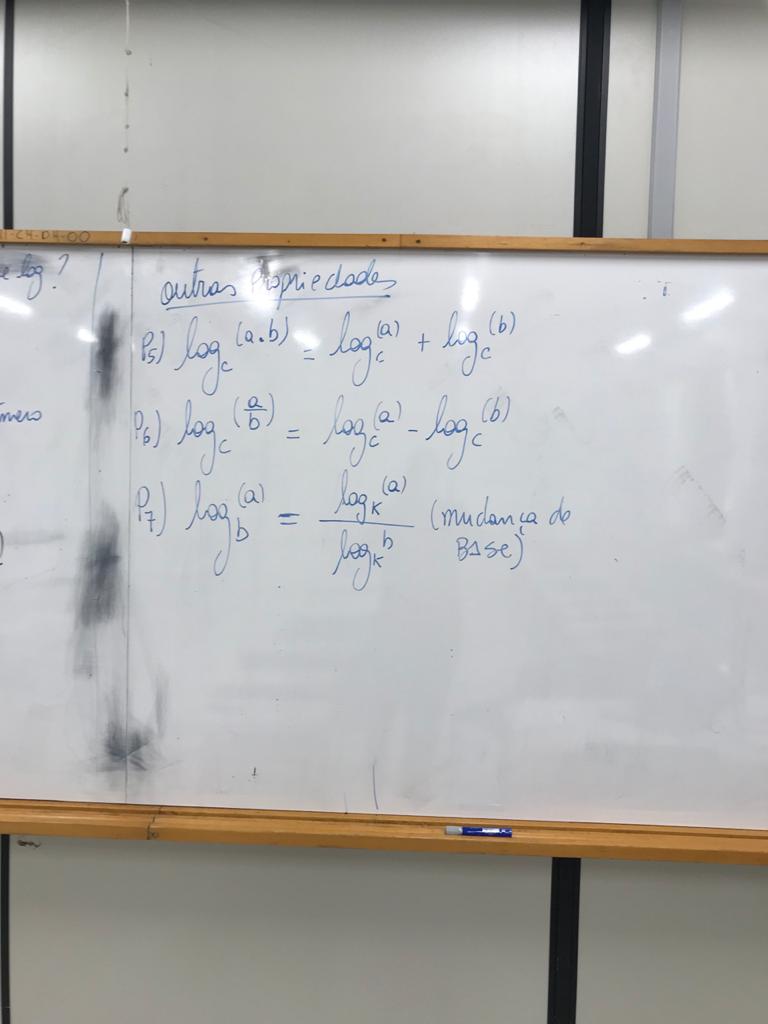 log?
outras Propriedades
P5) log_c (a.b) = log_c (a) + log_c (b)
P6) log_c (a/b) = log_c (a) - log_c (b)
P7) log_b (a) = log_K (a) / log_K b (mudança de
BASe)